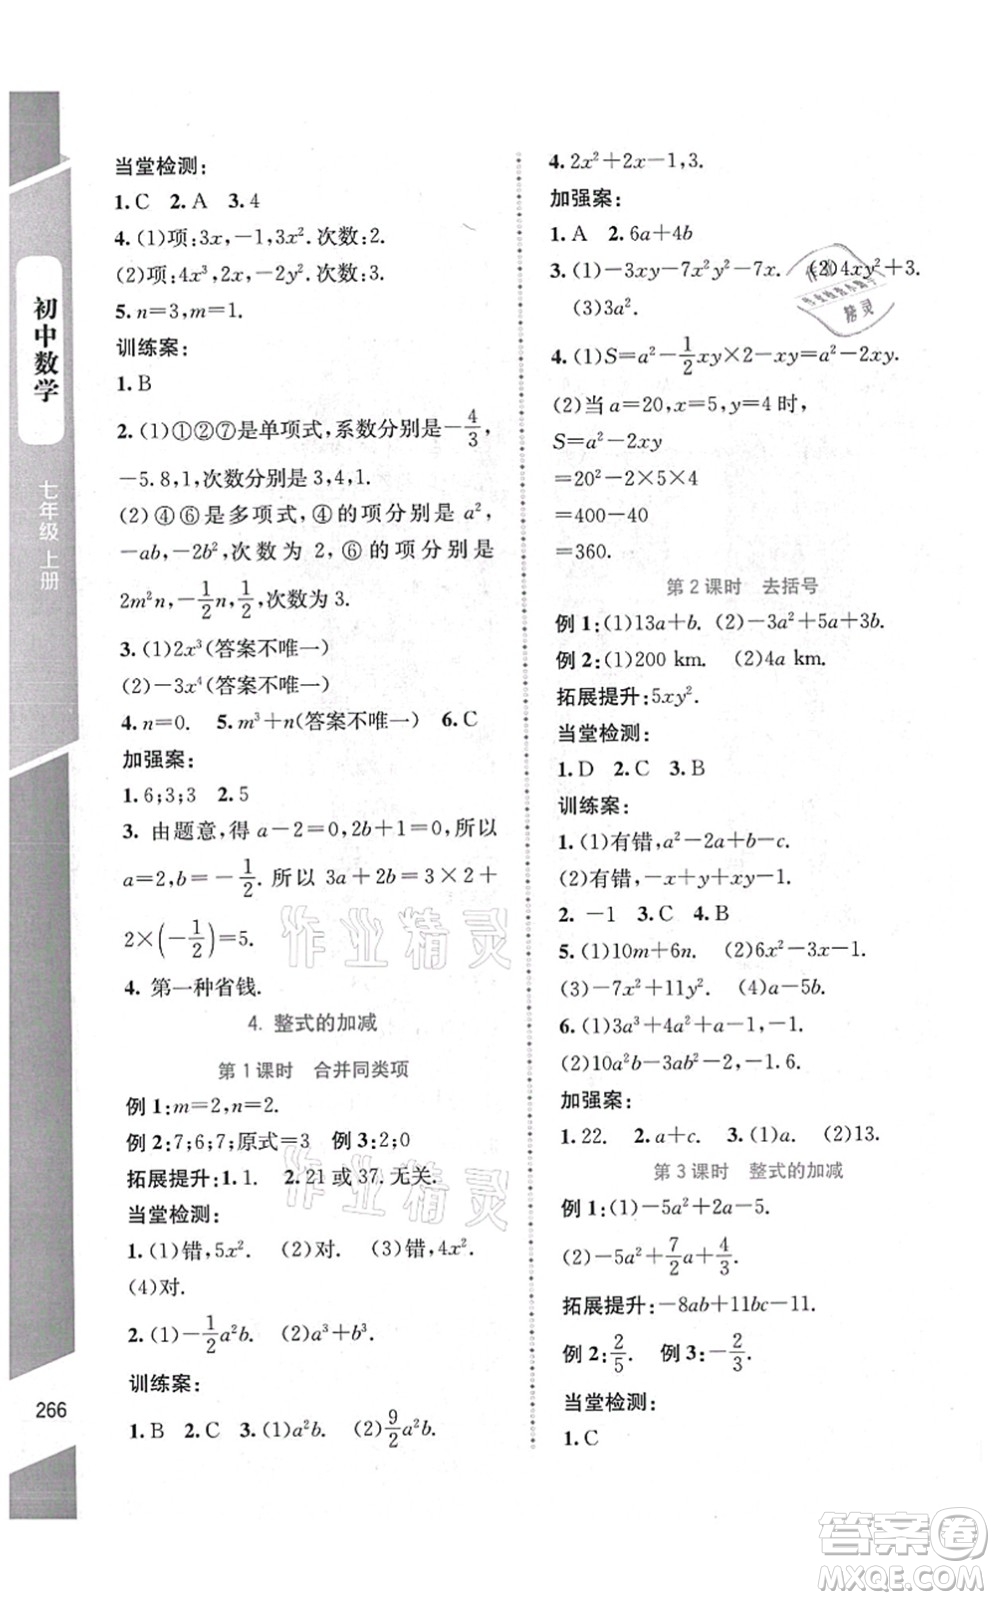 初中数学
七年级 上册
266
当堂检测:
1. C 2. A 3. 4
4. (1)项:3x,-1,3x². 次数:2.
(2)项:4x³,2xy,-2y². 次数:3.
5. n=3,m=1.
训练案:
1. B
2. (1)①②⑦是单项式,系数分别是-4/3,
-5.8,1,次数分别是3,4,1.
(2)④⑥是多项式,④的项分别是a²,
-ab,-2b²,次数为2,⑥的项分别是
2m²n,-1/2n,1/2,次数为3.
3. (1)2x³(答案不唯一)
(2)-3x⁴(答案不唯一)
4. n=0. 5. m³+n(答案不唯一) 6. C
加强案:
1. 6;3;3 2. 5
3. 由题意,得a-2=0,2b+1=0,所以
a=2,b=-1/2. 所以3a+2b=3×2+
2×(-1/2)=5.
4. 第一种省钱.
4. 整式的加减
第1课时 合并同类项
例1:m=2,n=2.
例2:7;6;7;原式=3 例3:2;0
拓展提升:1. 1. 2. 21或37. 无关.
当堂检测:
1. (1)错,5x². (2)对. (3)错,4x².
(4)对.
2. (1)-1/2a²b. (2)a³+b³.
训练案:
1. B 2. C 3. (1)a²b. (2)9/2a²b.
4. 2x²+2x-1,3.
加强案:
1. A 2. 6a+4b
3. (1)-3xy-7x²y²-7x. (2)4xy²+3.
(3)3a².
4. (1)S=a²-1/2xy×2-xy=a²-2xy.
(2)当a=20,x=5,y=4时,
S=a²-2xy
=20²-2×5×4
=400-40
=360.
第2课时 去括号
例1:(1)13a+b. (2)-3a²+5a+3b.
例2:(1)200 km. (2)4a km.
拓展提升:5xy².
当堂检测:
1. D 2. C 3. B
训练案:
1. (1)有错,a²-2a+b-c.
(2)有错,-x+y+xy-1.
2. -1 3. C 4. B
5. (1)10m+6n. (2)-3x-1.
(3)-7x²+x. (4)a-5b.
6. (1)3a³+4a²-a-5.
(2)10a²b-3a²-5b².
加强案:
1. 22. 2. a+c. 3. (1)a. (2)13.
第3课时 整式的加减
例1:(1)-5a²+2a-5.
(2)-5a²+7/2a-4/3.
拓展提升:-8ab+11bc-11.
例2:2/5. 例3:-2/3.
当堂检测:
1. C
作业精灵
作业精灵
答案卷
MXQE.COM